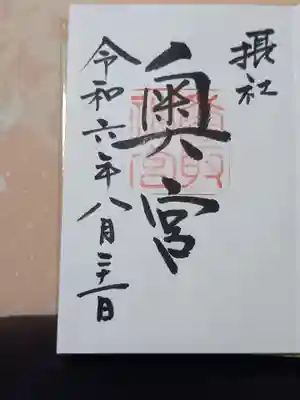 摂社
奥宮
令和六年八月二十一日